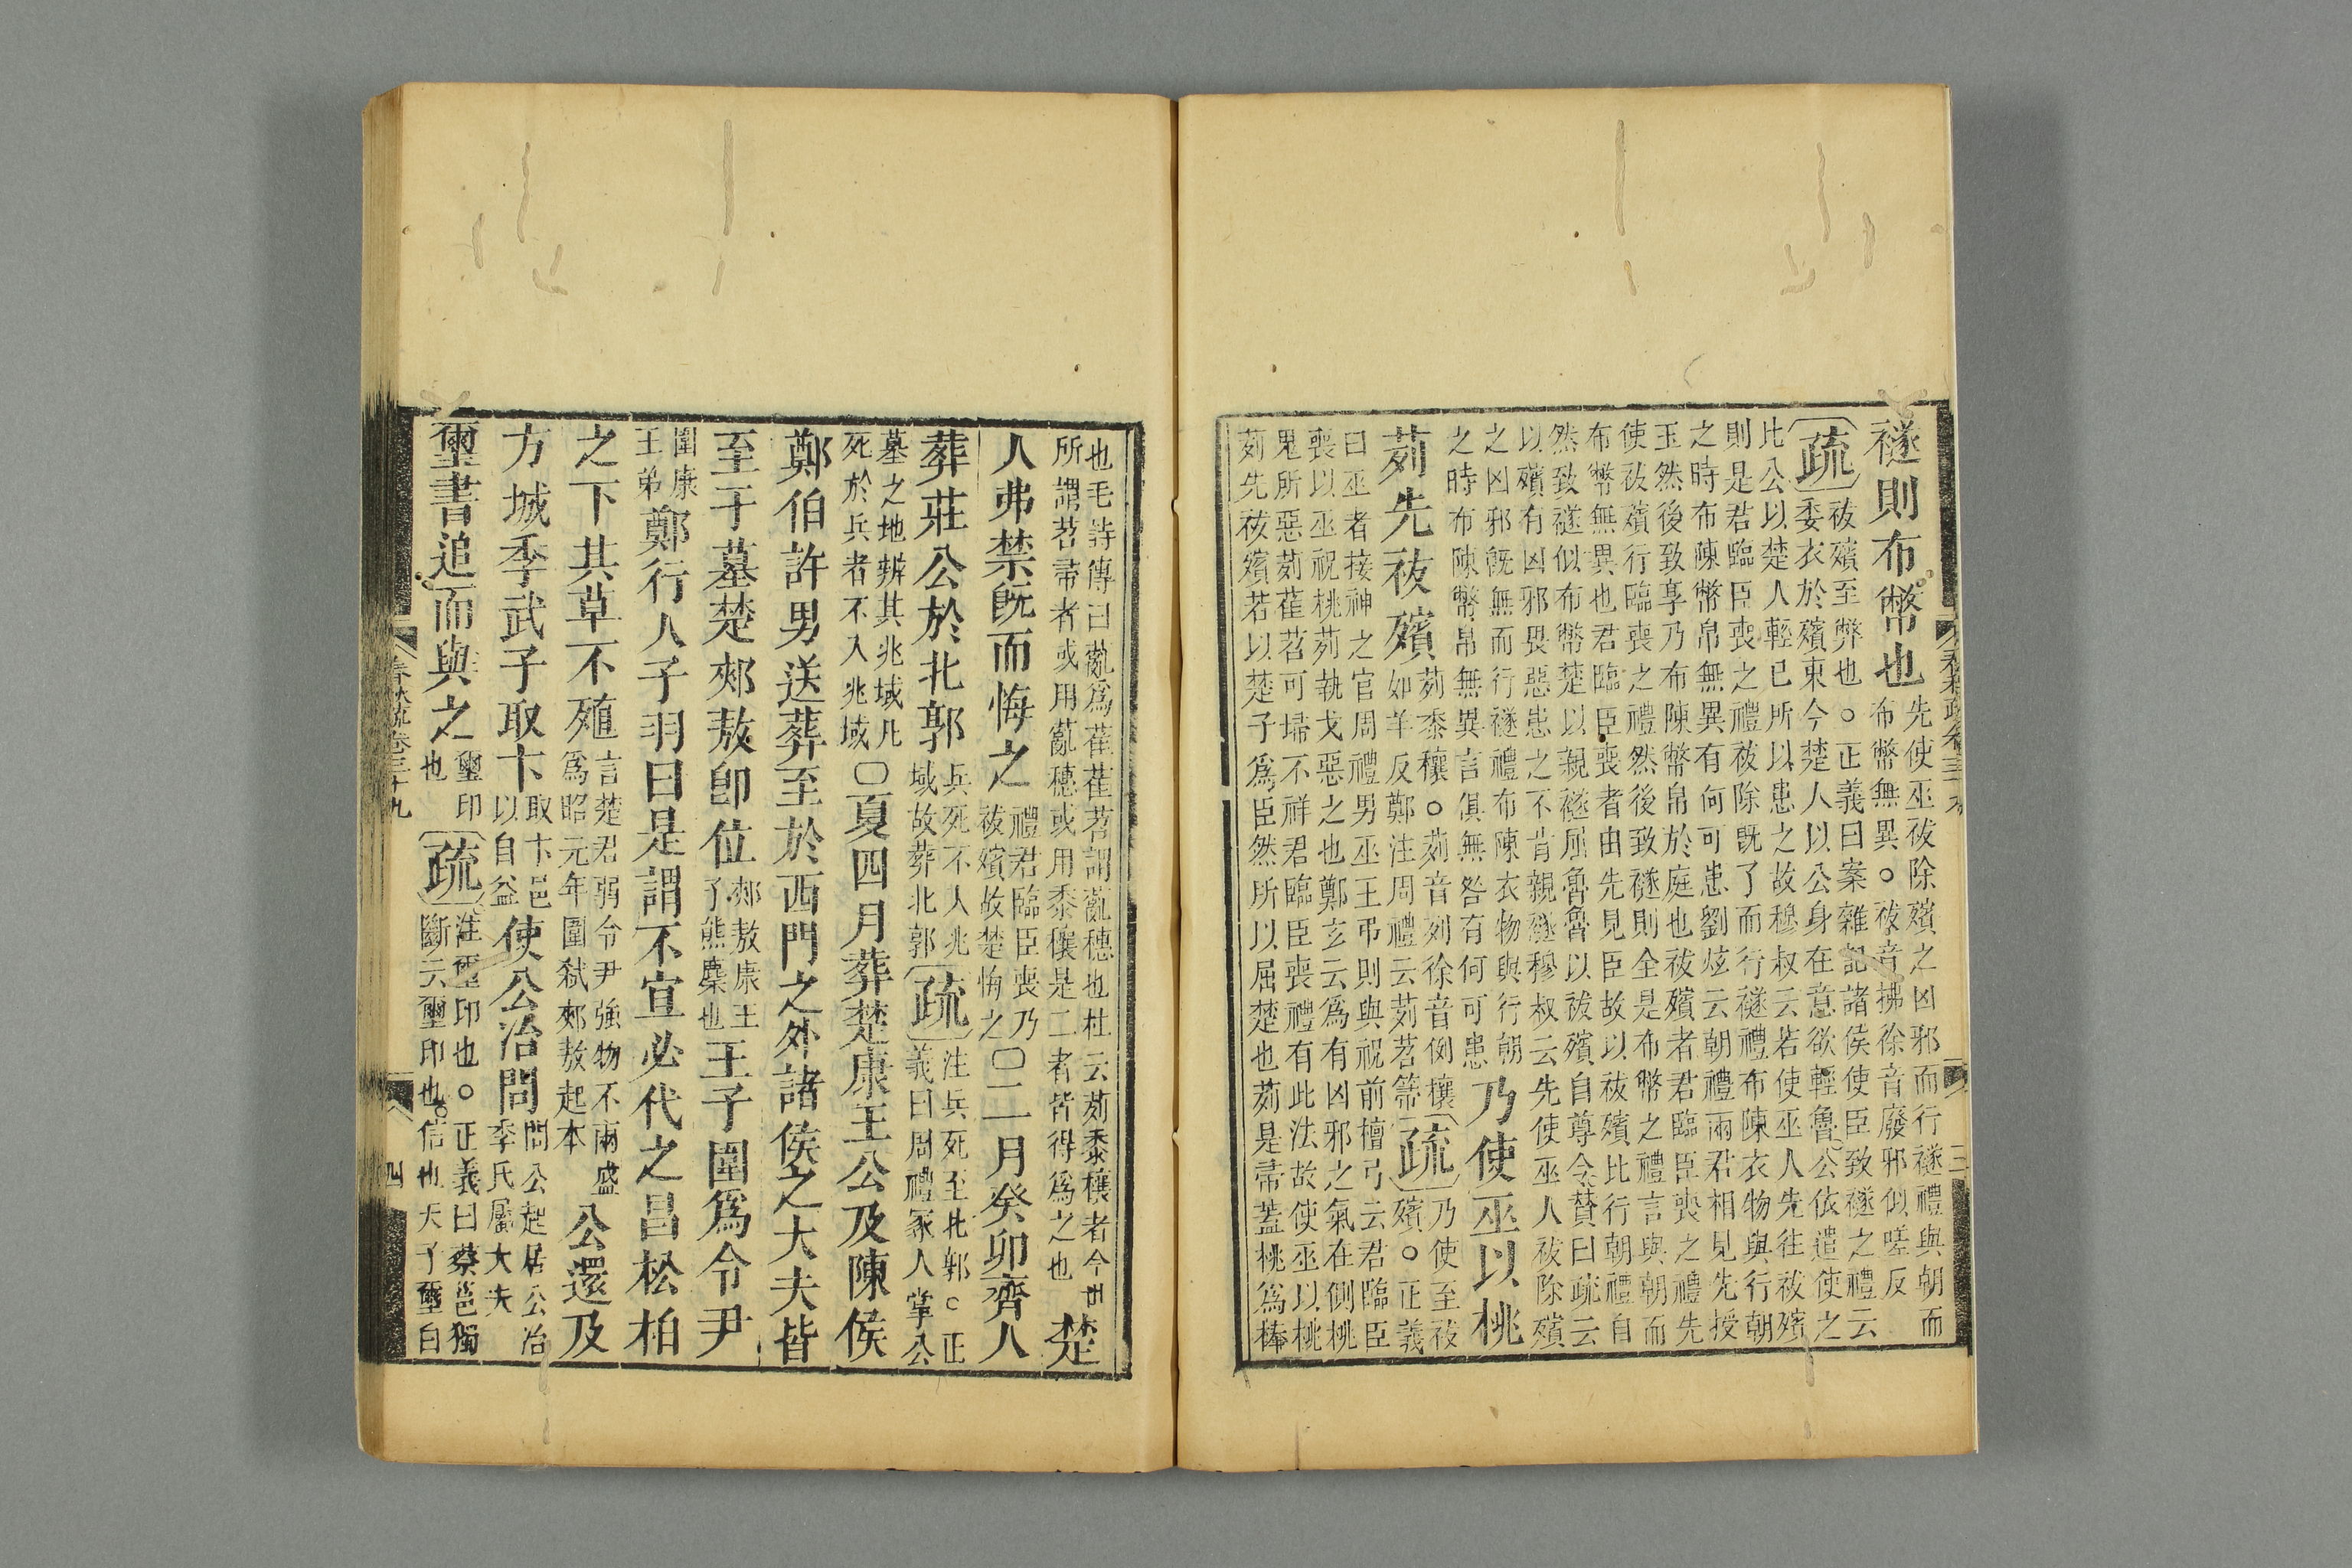 襚則布幣也 先使巫祓除殯之凶邪而行襚禮與朝而
布幣無異。祓音拂徐音廢邪似嗟反
疏 祓殯至弊也。正義曰案雜記諸侯使臣致襚之禮云
委衣於殯東今楚人以公身在意欲輕魯公依遣使之
比公以楚人輕已所以患之故穆叔云若使巫人先往祓殯
則是君臨臣喪之禮祓除既了而行襚禮布陳衣物與行朝
之時布陳幣帛無異有何可患劉炫云朝禮兩君相見先授
玉然後致享乃布陳幣帛於庭也祓殯者君臨臣喪之禮先
使祓殯行臨喪之禮然後致襚則全是布幣之禮言與朝而
布幣無異也君臨臣喪者由先見臣故以祓殯比行朝禮自
然致襚似布幣楚以親襚屈魯魯以祓殯自尊令賛曰疏云
以殯有凶邪畏惡患之不肯親襚穆叔云先使巫人祓除殯
之凶邪既無而行襚禮布陳衣物與行朝
之時布陳幣帛無異言俱無咎有何可患 乃使巫以桃
茢先祓殯 茢黍穰。茢音列徐音例穰
如羊反鄭注周禮云茢苕箒 疏 乃使至祓
殯。正義
曰巫者接神之官周禮男巫王弔則與祝前檀弓云君臨臣
喪以巫祝桃茢執戈惡之也鄭玄云爲有凶邪之氣在側桃
鬼所惡茢萑苕可埽不祥君臨臣喪禮有此法故使巫以桃
茢先祓殯若以楚子爲臣然所以屈楚也茢是帚蓋桃爲棒
也毛詩傳曰薍爲萑萑苕謂薍穗也杜云茢黍穰者今世
所謂苕帚者或用薍穗或用黍穰是二者皆得爲之也 楚
人弗禁旣而悔之 禮君臨臣喪乃
祓殯故楚悔之 〇二月癸卯齊人
葬莊公於北郭 兵死不入兆
域故葬北郭 疏 注兵死至北郭。正
義曰周禮冢人掌公
墓之地辨其兆域凡
死於兵者不入兆域 〇夏四月葬楚康王公及陳侯
鄭伯許男送葬至於西門之外諸侯之大夫皆
至于墓楚郟敖卽位 郟敖康王
子熊麇也 王子圍爲令尹
圍康
王弟 鄭行人子羽曰是謂不宜必代之昌松柏
之下其草不殖 言楚君弱令尹強物不兩盛
爲昭元年圍弒郟敖起本 公還及
方城季武子取卞 取卞邑
以自益 使公冶問 問公起居公冶
季氏屬大夫
璽書追而與之 璽印
也 疏 注璽印也。正義曰蔡邕獨
斷云璽印也信也天子璽白
春秋疏卷三十九 四